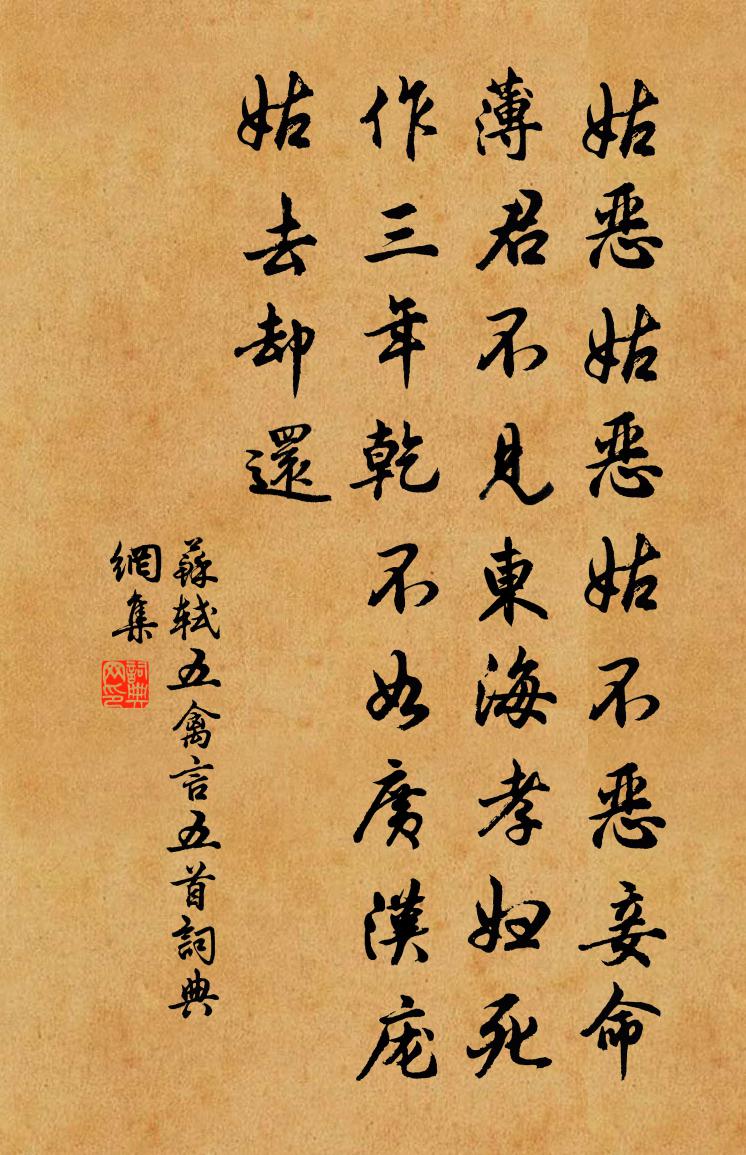 姑恶姑恶姑不恶妾命
薄君不見東海孝婦死
作三年乾不如廣漢庞
姑去却還
蘇軾五禽言五首詞典
網集
詞典
网印